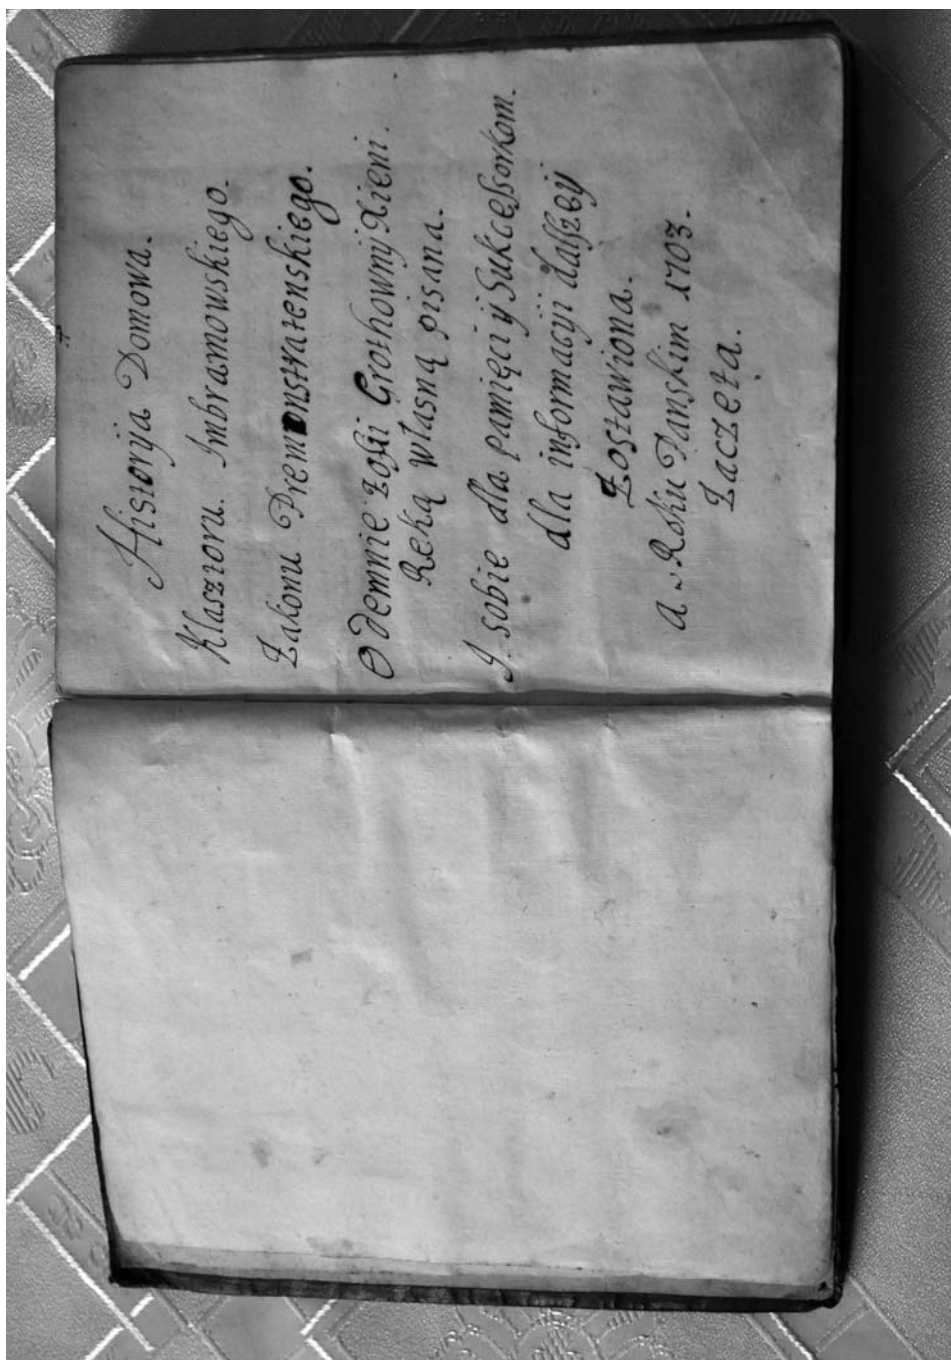 Historyja Domowa.
Klasztoru Imbramowskiego.
Zakonu Premonstratenskiego.
Odemnie Zofii Grothowny Xieni.
Ręką własną pisana.
I sobie dla pamięci y Sukcessorkom.
dla informacyi dalszey
Zostawiona.
a Roku Panskim 1703.
Zaczęta.